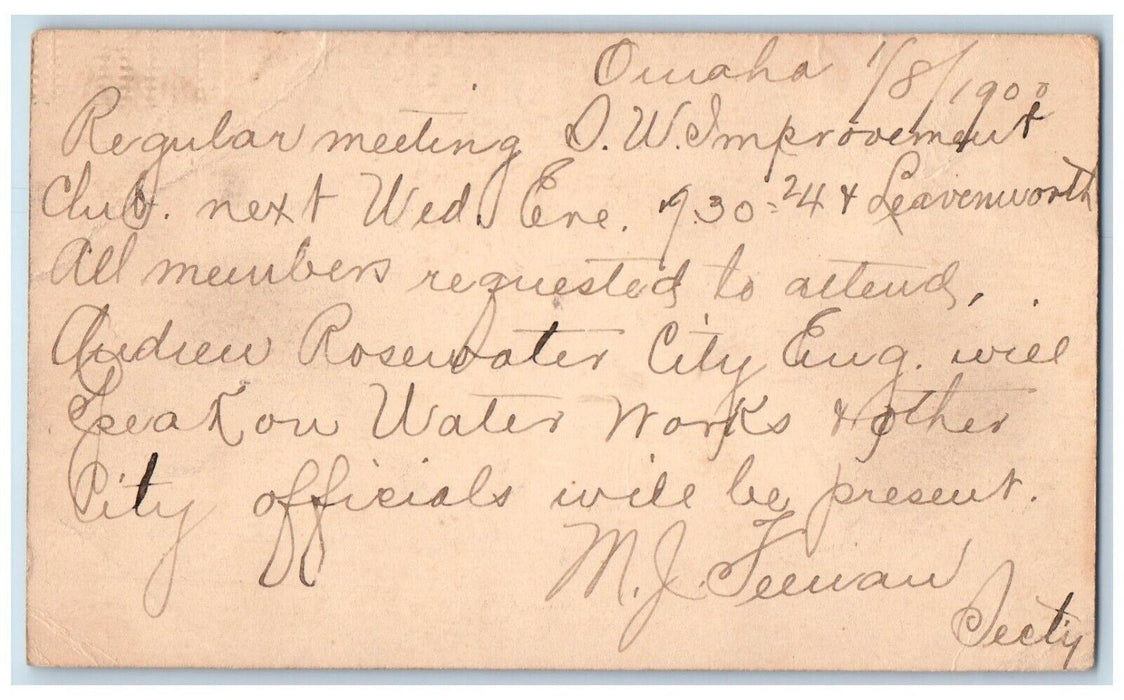 Omaha 1/8/1900
Regular meeting S. W. Improvement
Club. next Wed. Eve. 7.30 - 24 & Leavenworth
All members requested to attend,
Andrew Rosewater City Eng. will
Speak on Water Works & other
City officials will be present.
M. J. Feenan
Secty